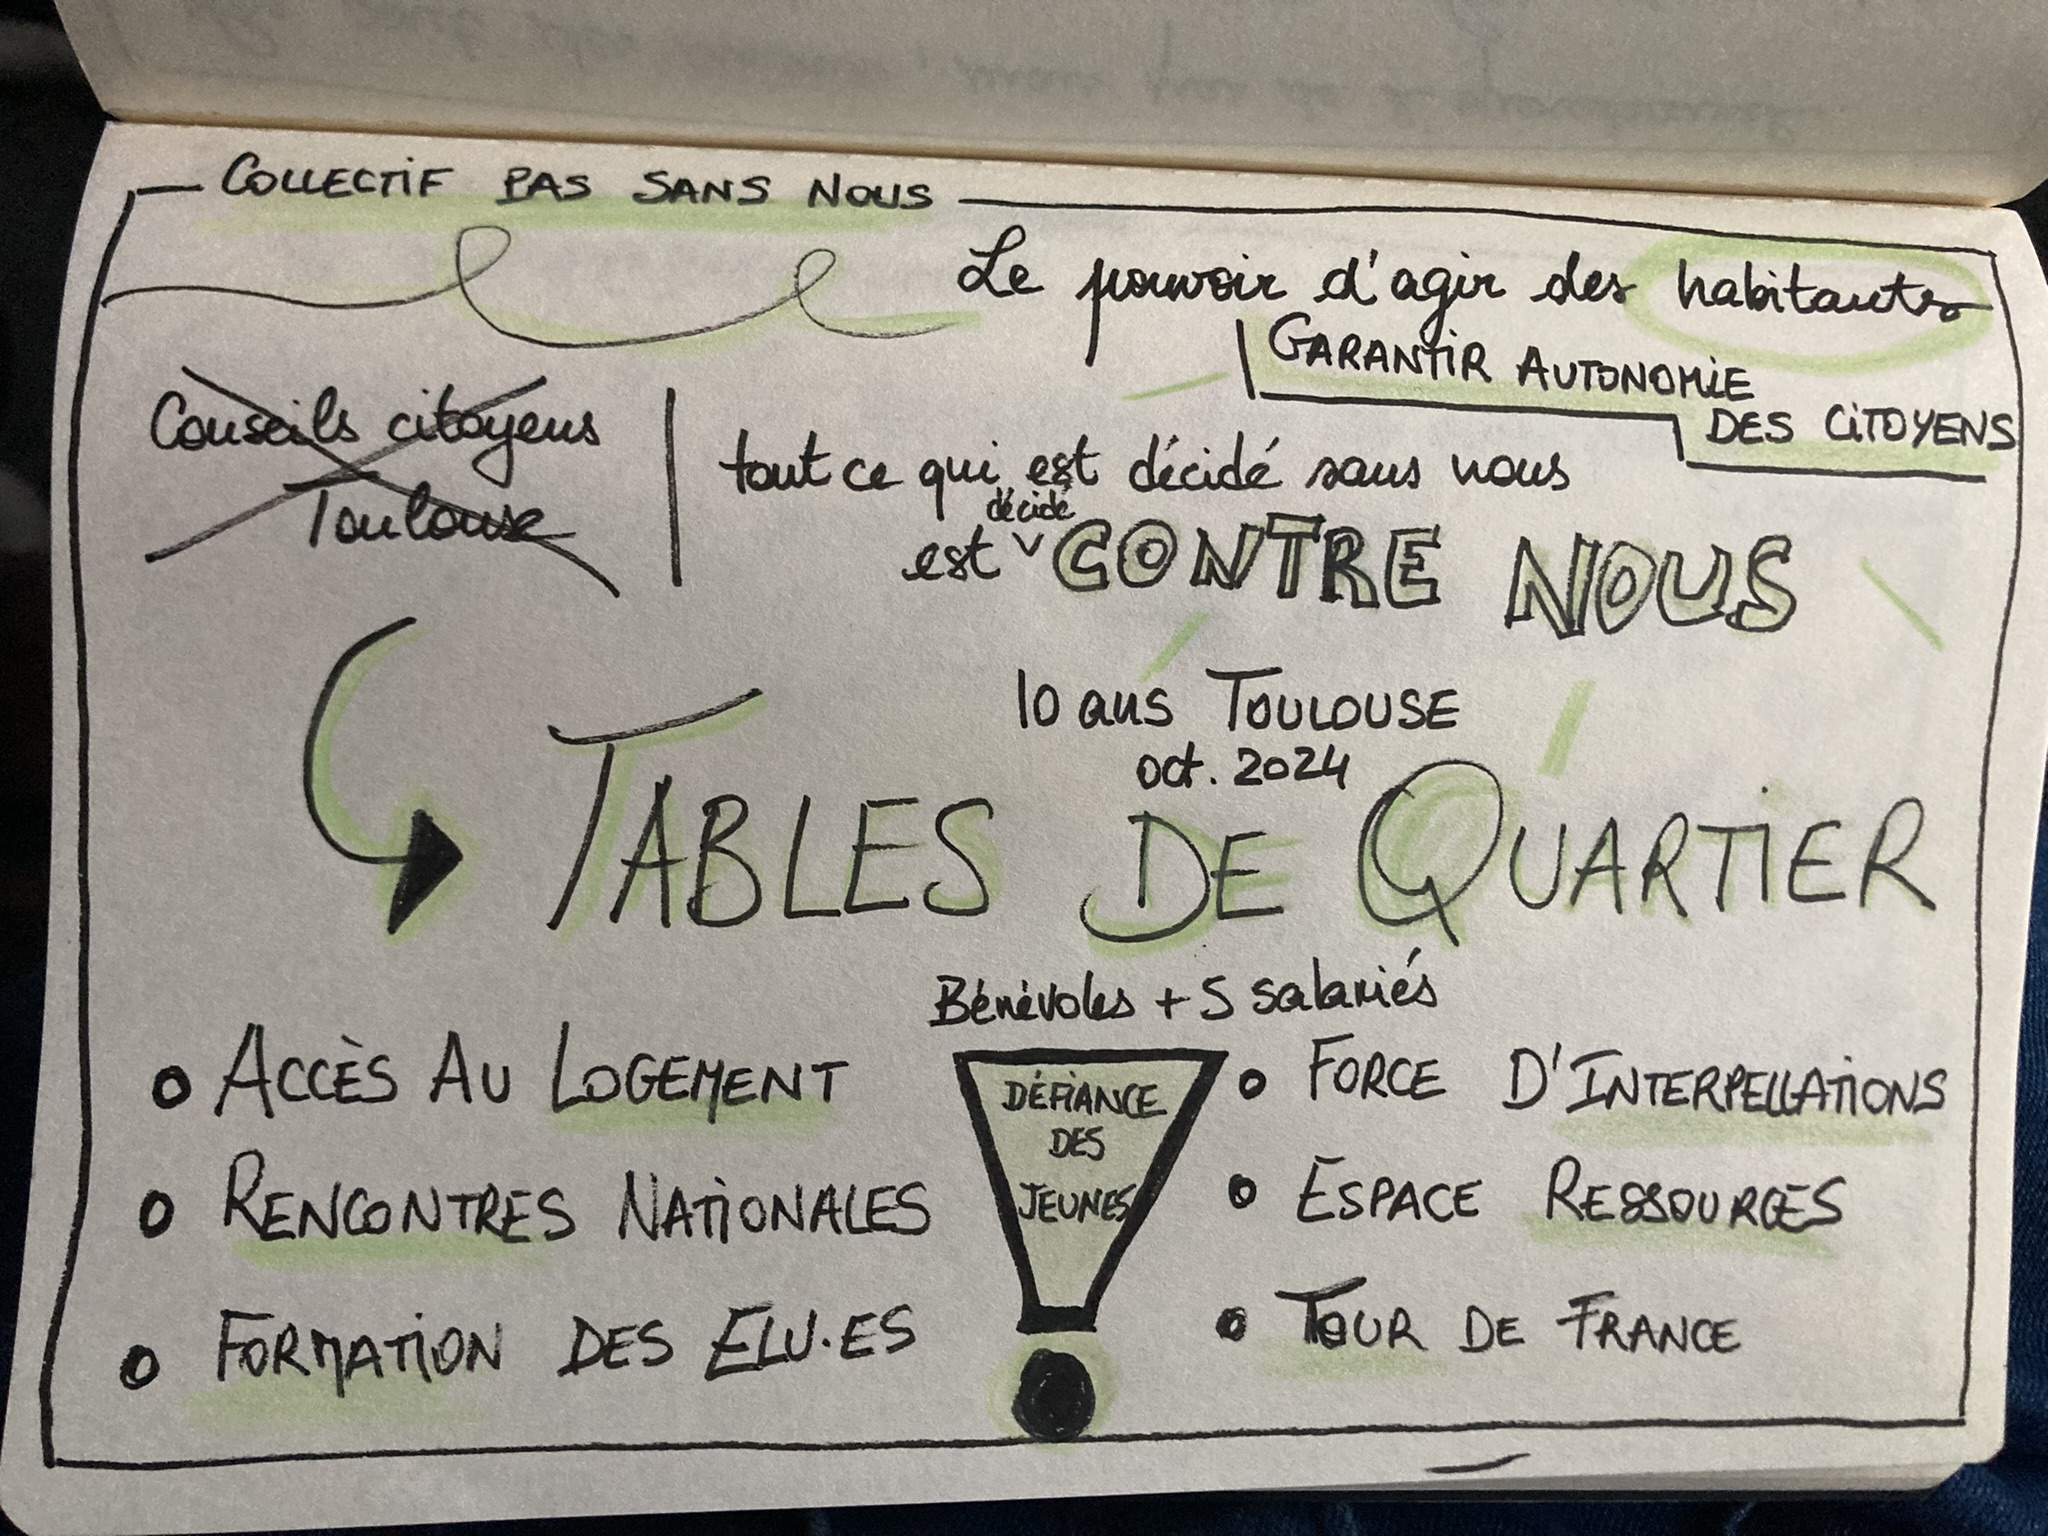 COLLECTIF PAS SANS NOUS
Le pouvoir d'agir des habitants
GARANTIR AUTONOMIE
DES CITOYENS
Conseils citoyens
Toulouse
tout ce qui est décidé sans nous
est décidé CONTRE NOUS
10 ans TOULOUSE
oct. 2024
TABLES DE QUARTIER
Bénévoles + 5 salariés
• ACCÈS AU LOGEMENT
• RENCONTRES NATIONALES
• FORMATION DES ELU·ES
DÉFIANCE
DES
JEUNES
• FORCE D'INTERPELLATIONS
• ESPACE RESSOURCES
• TOUR DE FRANCE